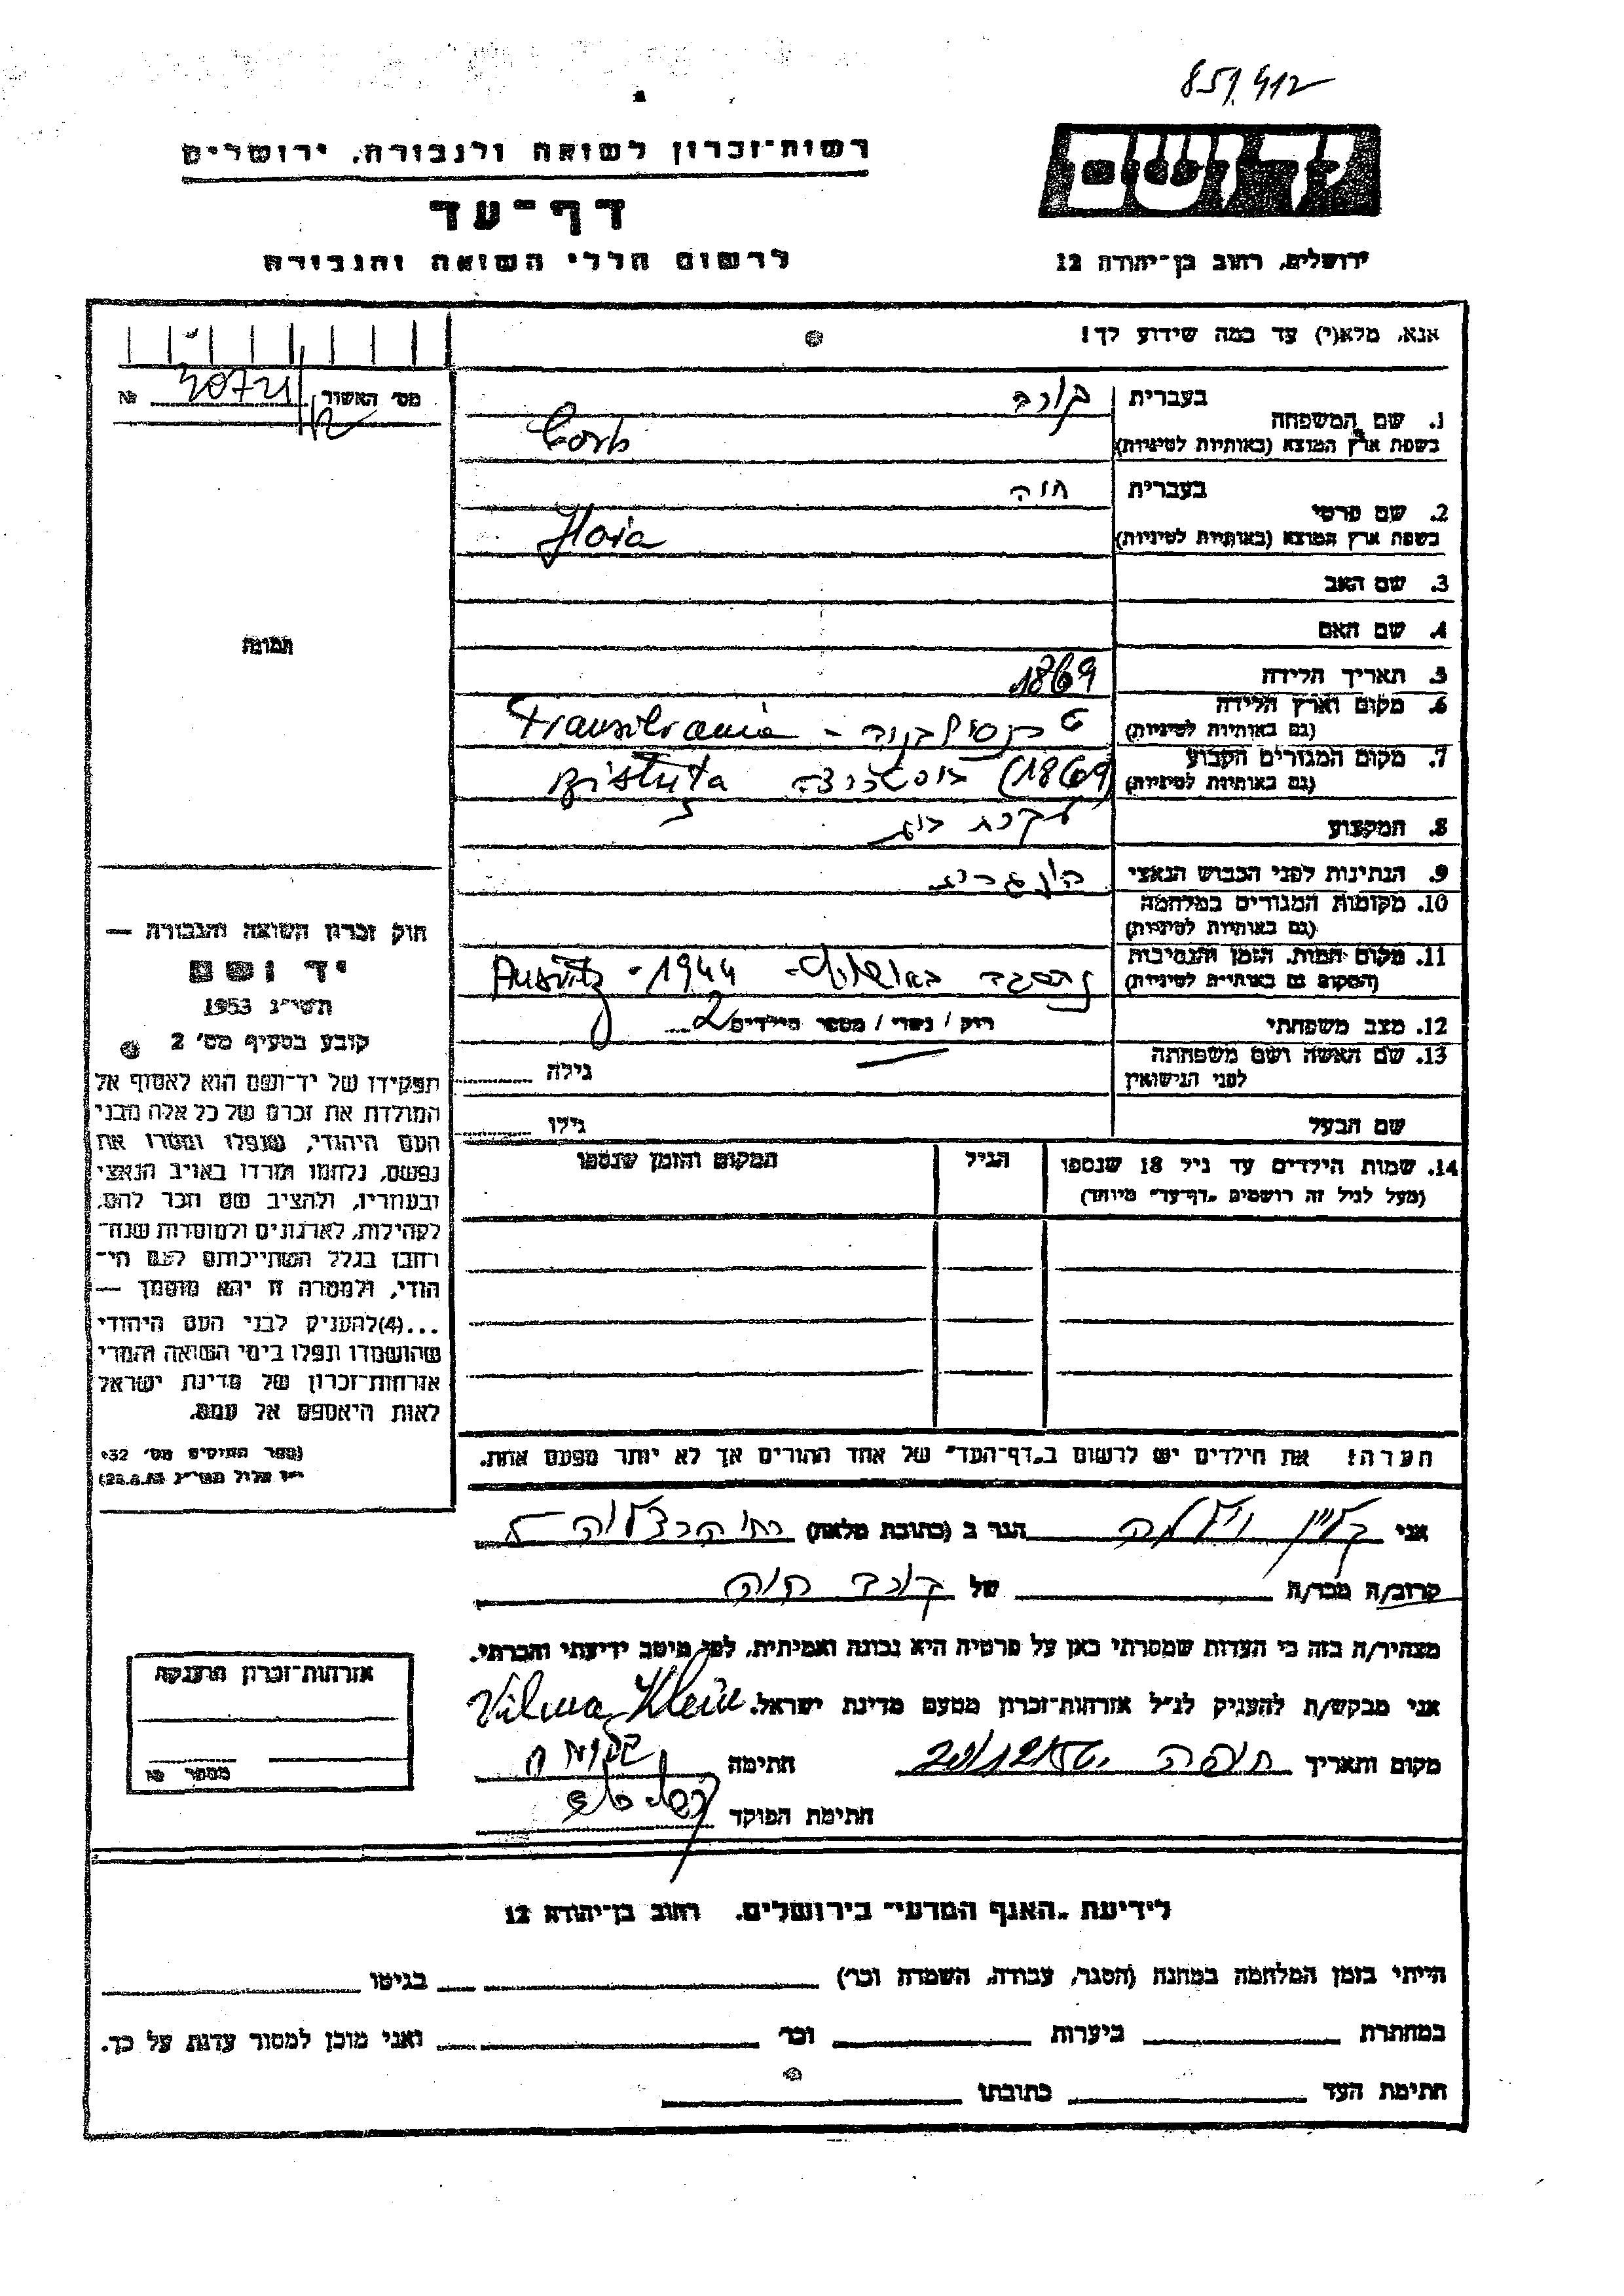 851.412
רשות־זכרון לשואה ולגבורה, ירושלים
דף־עד
לרשום חללי השואה והגבורה
ירושלים, רחוב בן־יהודה 12
אנא, מלא(י) עד כמה שידוע לך!
מס׳ האשור № 30721
1. שם המשפחה בעברית קורב
בשפת ארץ המוצא (באותיות לטיניות) Corb
2. שם פרטי בעברית חוה
בשפת ארץ המוצא (באותיות לטיניות)
3. שם האב
4. שם האם
5. תאריך הלידה 1869
6. מקום וארץ הלידה
(גם באותיות לטיניות) טרנסילבניה - Transilvania
7. מקום המגורים הקבוע
(גם באותיות לטיניות) (1869) Bistrița
8. המקצוע עקרת בית
9. הנתינות לפני הכבוש הנאצי הונגרית
10. מקומות המגורים במלחמה
(גם באותיות לטיניות)
11. מקום המות, הזמן והנסיבות
(המקום גם באותיות לטיניות) באושוויץ - 1944 -
12. מצב משפחתי רווק / נשוי / מספר הילדים 2
13. שם האשה ושם משפחתה
לפני הנישואין גילה
שם הבעל גילו
14. שמות הילדים עד גיל 18 שנספו הגיל המקום והזמן שנספו
(מעל לגיל זה רושמים „דף־עד״ מיוחד)
הערה! את הילדים יש לרשום ב„דף־העד״ של אחד ההורים אך לא יותר מפעם אחת.
תמונה
חוק זכרון השואה והגבורה —
יד ושם
תשי״ג 1953
קובע בסעיף מס׳ 2
תפקידו של יד־ושם הוא לאסוף אל
המולדת את זכרם של כל אלה מבני
העם היהודי, שנפלו ומסרו את
נפשם, נלחמו ומרדו באויב הנאצי
ובעוזריו, ולהציב שם וזכר להם,
לקהילות, לארגונים ולמוסדות שנח־
רחבו בגלל השתייכותם לעם הי־
הודי, ולמטרה זו יהא מוסמך —
...(4)להעניק לבני העם היהודי
שהושמדו ונפלו בימי השואה והמרי
אזרחות־זכרון של מדינת ישראל
לאות היאספם אל עמם.
(ספר החוקים מס׳ 132
י״ז אלול תשי״ג 28.8.53)
אני קליין וילמה הגר ב (כתובת מלאה)
קרוב/ה מכר/ה של קורב חוה
מצהיר/ה בזה כי העדות שמסרתי כאן על פרטיה היא נכונה ואמיתית, לפי מיטב ידיעתי והכרתי.
אני מבקש/ת להעניק לנ״ל אזרחות־זכרון מטעם מדינת ישראל. Vilma Klein
מקום ותאריך חיפה חתימה
חתימת הפוקד
אזרחות־זכרון הוענקה
מספר
לידיעת „האגף המדעי״ בירושלים, רחוב בן־יהודה 12
הייתי בזמן המלחמה במחנה (הסגר, עבודה, השמדה וכו׳) בגיטו
במחתרת ביערות וכו׳ ואני מוכן למסור עדות על כך.
חתימת העד כתובתו